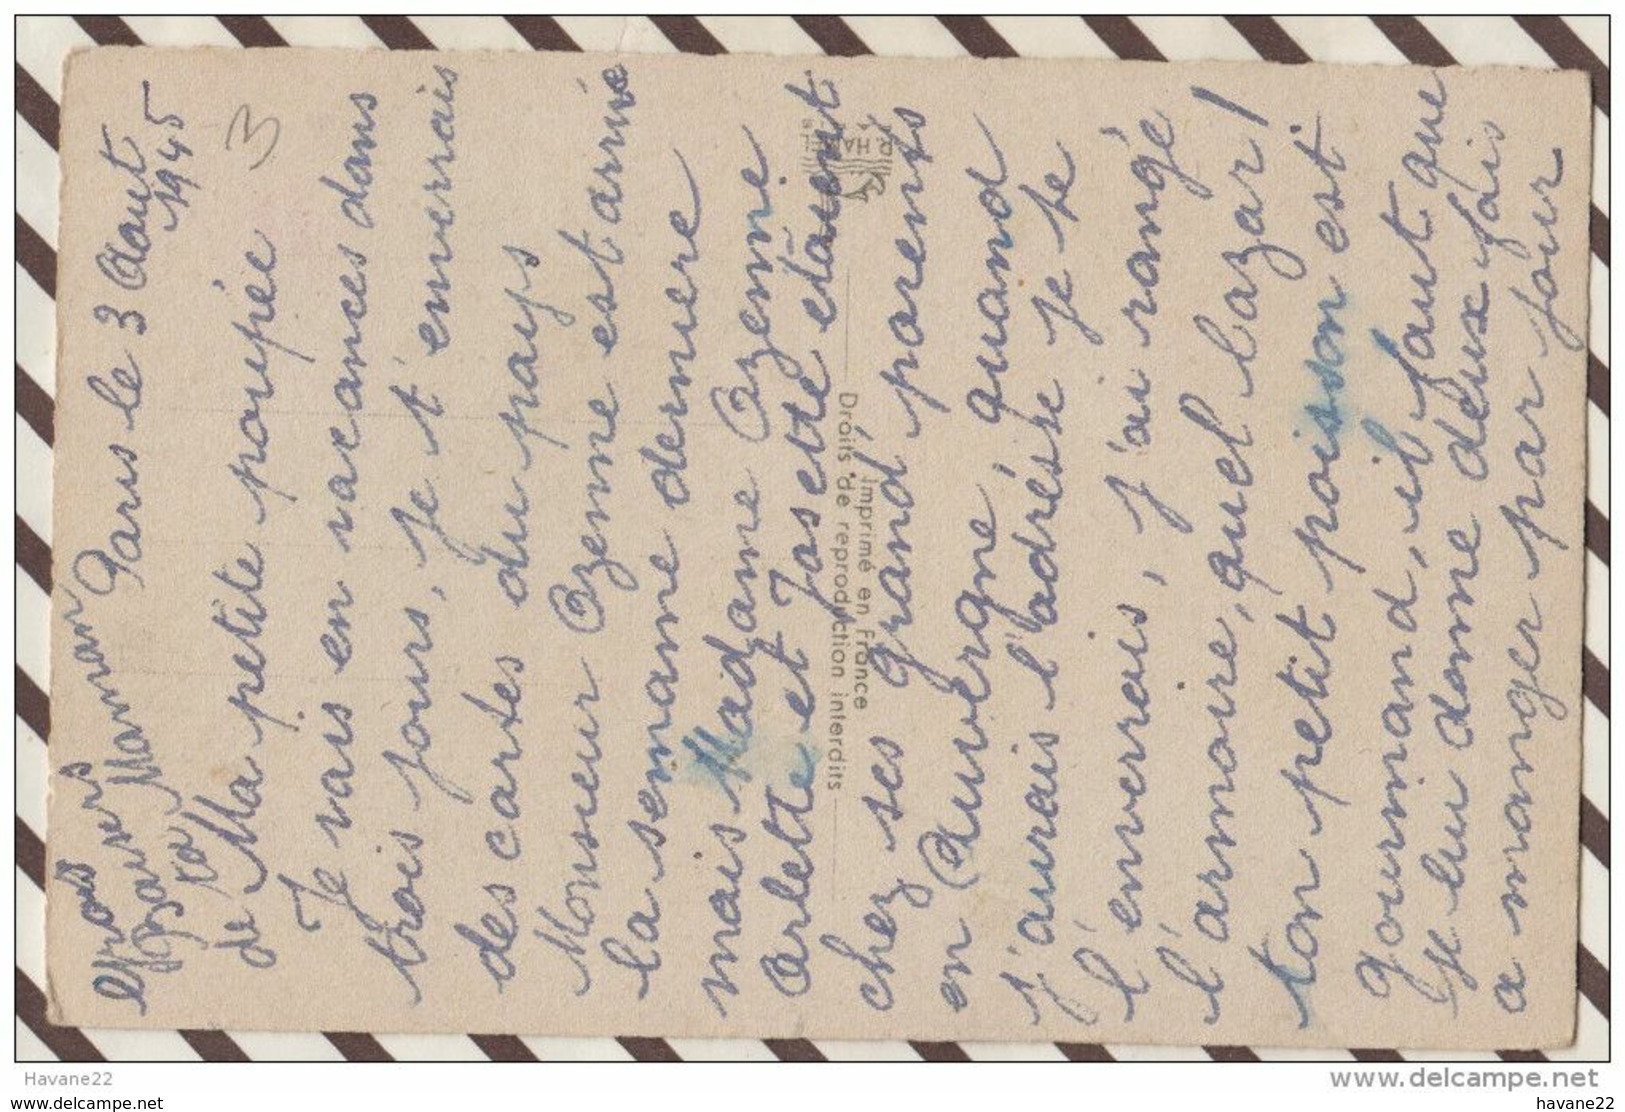 Paris le 3 Août
1945
3
Gros
Baisers
de
ta
Maman
Ma petite poupée
Je vais en vacances dans
trois jours, je t'enverrais
des cartes du pays
Monsieur Ozenne est arrivé
la semaine dernière
mais Madame Ozenne
Arlette et Josette étaient
chez ses grand parents
en Auvergne, quand
j'aurais l'adrésse je te
l'enverrais, j'ai rangé
l'armoire, quel bazar!
ton petit poisson est
gourmand, il faut que
je lui donne deux fois
a manger par jour
Imprimé en France
Droits de reproduction interdits
Havane22
www.delcampe.net
www.delcampe.net
havane22